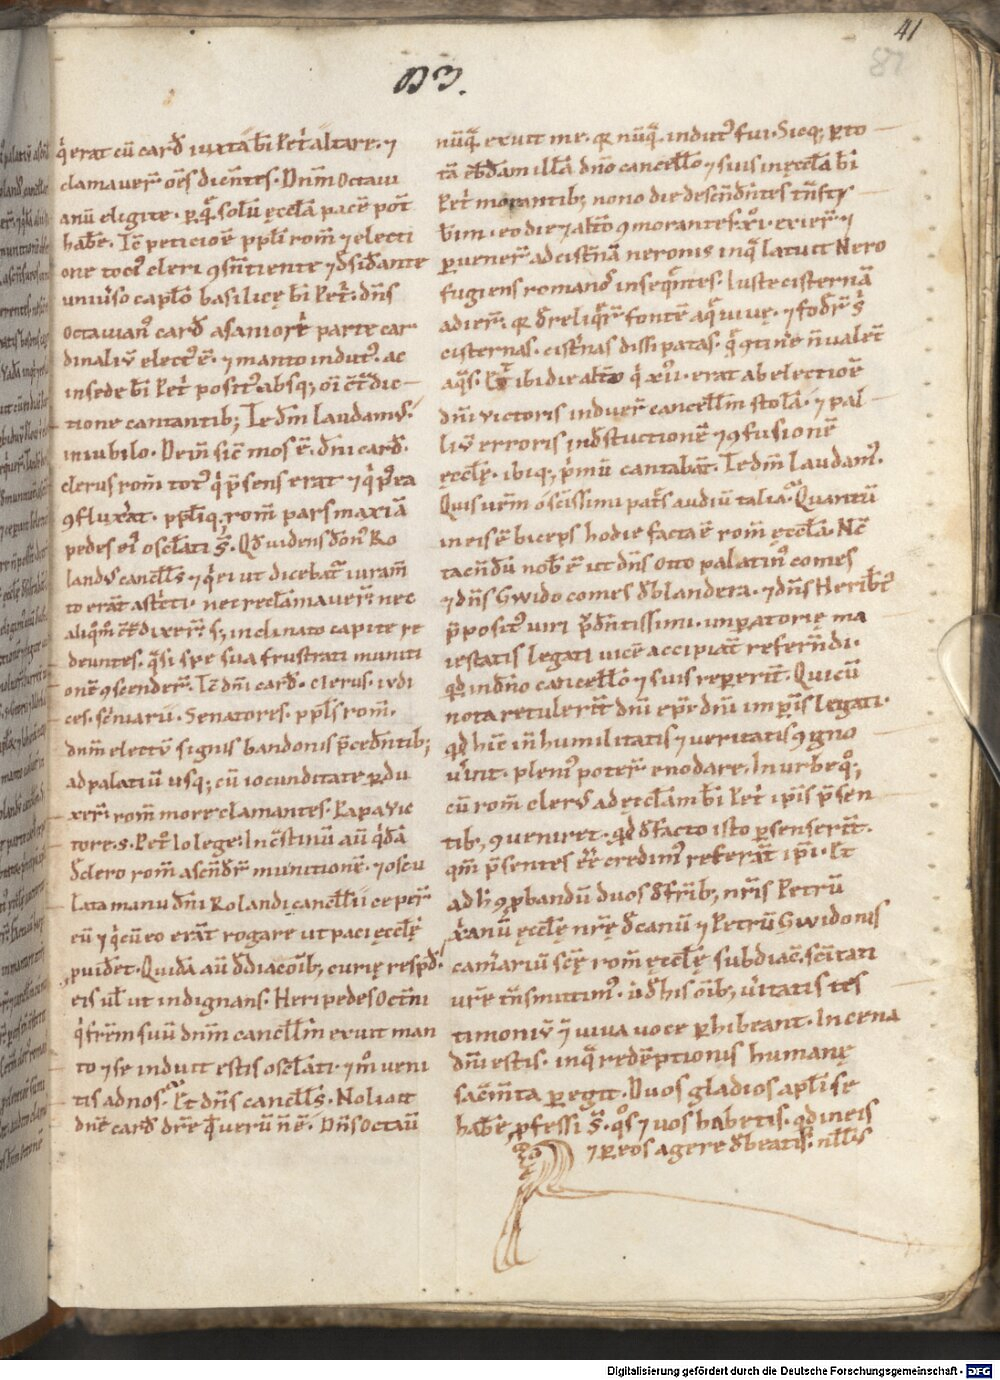 41
87
D3.
q̇ erat cū card̄ iuxta b̄i Pet̄ altare. ⁊
clamauer̄ oēs dicentes. Dnm̄ Octaui
anū eligite. ꝑ quē solū ęccl̄a pacē pot̄
hab̄e. Tc̄ peticiōe ppl̄i rom̄ ⁊ electi
one toci᷒ cleri ꝯsn̄tiente ⁊ d̄sid̄ante
uniu̇so capl̄o basilicę b̄i Pet̄. dn̄s
Octauian᷒ card̄ a saniori parte car
dinaliū elect᷒ ē. ⁊ manto indut᷒. ac
in sede b̄i Pet̄ posit᷒ absq; oī ct̄᷒dic
tione cantantib; Te dm̄ laudam᷒.
in iubilo. Dein̄ sic̄ mos ē. dn̄i card̄.
clerus rom̄ tot᷒ q̇ p̄sens erat ⁊ q̇ postea
ꝯfluxerat. ppl̄iq. rom̄ pars maxīa
pedes ei᷒ oscl̄ati s̄. Qd̄ uidens don̄᷒ Ro
land᷒ cancell̄s ⁊ q̇ ei ut dicebat᷒ iuram̄
to erāt astc̄ti. nec recl̄amauer̄ nec
aliq̄m ct̄᷒dixer̄. s; inclinato capite re
deuntes. q̄si spe sua frustrati muniti
onē ꝯscender̄. Tc̄ dn̄i card̄. clerus. iudi
ces. sc̄niarii. Senatores. ppl̄s rom̄.
dnm̄ electū signis bandonis p̄cedn̄tib;
ad palatiū usq; cū iocunditate ꝑdu
xer̄. rom̄ more clamantes. Papa uic
tore. s. Pet᷒ lo lege. In c̄stinū aū q̇dā
d̄ clero rom̄ ascn̄der̄ munitionē. ⁊ oscu
lata manu dn̄i Rolandi cancell̄ii ceper̄
eū ⁊ q̇ cū eo erāt rogare ut paci ęccl̄ę
ꝓuid̄et. Quidā aū d̄ diacoib; curię respd̄.
eis uł ut indignans. Heri pedes Octn̄i
q̇ frēm suū dnm̄ cancell̄m exuit man
to ⁊ se induit estis oscl̄ati. ⁊ m̊ ueni
tis ad nos. Et dn̄s cancell̄s. Noli ait
dn̄e card̄ dr̄e qđ uerū n̄ ē. Dn̄s Octau̇
nūq̄ exuit me. q̇ nūq̄ indut᷒ fui. Sicq; ꝑ to
tā ebd̄am illā dn̄o cancell̄o ⁊ suis in ęccl̄a b̄i
Pet̄ morantib; nono die descn̄dn̄tes tn̄s ty
b̄im. eo die ⁊ alt̄o ꝯmorantes. xi. exier̄ ⁊
ꝑuener̄ ad cistn̄ā neronis in q̄ latuit Nero
fugiens romanos inseqn̄tes. Iuste cisternā
adier̄. q̇ d̄reliq̄r̄ fontē aq̄ uiuę. ⁊ foder̄ s᷒
cisternas. cist̄nas dissipatas. q̄ ꝯtine n̄ ualēt
aq̄s. Et ibi die alt̄o q̇ xii. erat ab electiōe
dn̄i uictoris induer̄ cancell̄m stolā. ⁊ pal
liū erroris in d̄st̄uctionē ⁊ ꝯfusionē
ęccl̄ę. ibiq; p᷒mū cantabāt. Te dm̄ laudam᷒.
Quis ur̄m o scīssimi pat̄s audiū talia. Quantū
in eis ē biceps hodie facta ē rom̄ ęccl̄a. Nc̄
tacn̄dū nob̄ ē ut dn̄s Otto palatin᷒ comes
⁊ dn̄s Gwido comes d̄ blandera. ⁊ dn̄s Heribt᷒
p̄posit᷒ uiri p̄dn̄tissimi. imꝑatorię ma
iestatis legati uicē accipiāt refern̄di.
qđ in dn̄o cancell̄o ⁊ suis reꝑerīt. Qui cū
nota retulerīt dn̄i epi dn̄i imp̄is legati.
qđ hic̄ in humilitatis ⁊ ueritatis ꝯigno
u̇int. pleni᷒ poter̄ enodare. In urbe q̊;
cū rom̄ cler᷒ ad ęccl̄am b̄i Pet̄ ip̄is p̄sen
tib; ꝯueniret. qđ d̄ facto isto ꝑsenserīt.
qm̄ p̄sentes ēē credim᷒ referāt ip̄i. Et
ad h᷒ ꝯꝓbandū duos d̄ fr̄ib; nr̄is Petrū
xp̄ianū ęccl̄ę nr̄ę d̄canū ⁊ Petrū Gwidonis
camariū scę rom̄ ęccl̄ę subdiac̄. sc̄itati
ur̄e tn̄smittim᷒. ut d̄ his oīb; u̇itatis tes
timoniū ī uiua uoce ꝑhibeant. In cena
dn̄i estis. in q̄ redēptionis humanę
sacīnta ꝑegit. Duos gladios apl̄i se
hab̄e ꝓfessi s̄. q̊s ⁊ uos habetis. qđ in eis
⁊ ꝑ eos agere d̄beatis. null̄s
Digitalisierung gefördert durch die Deutsche Forschungsgemeinschaft - DFG